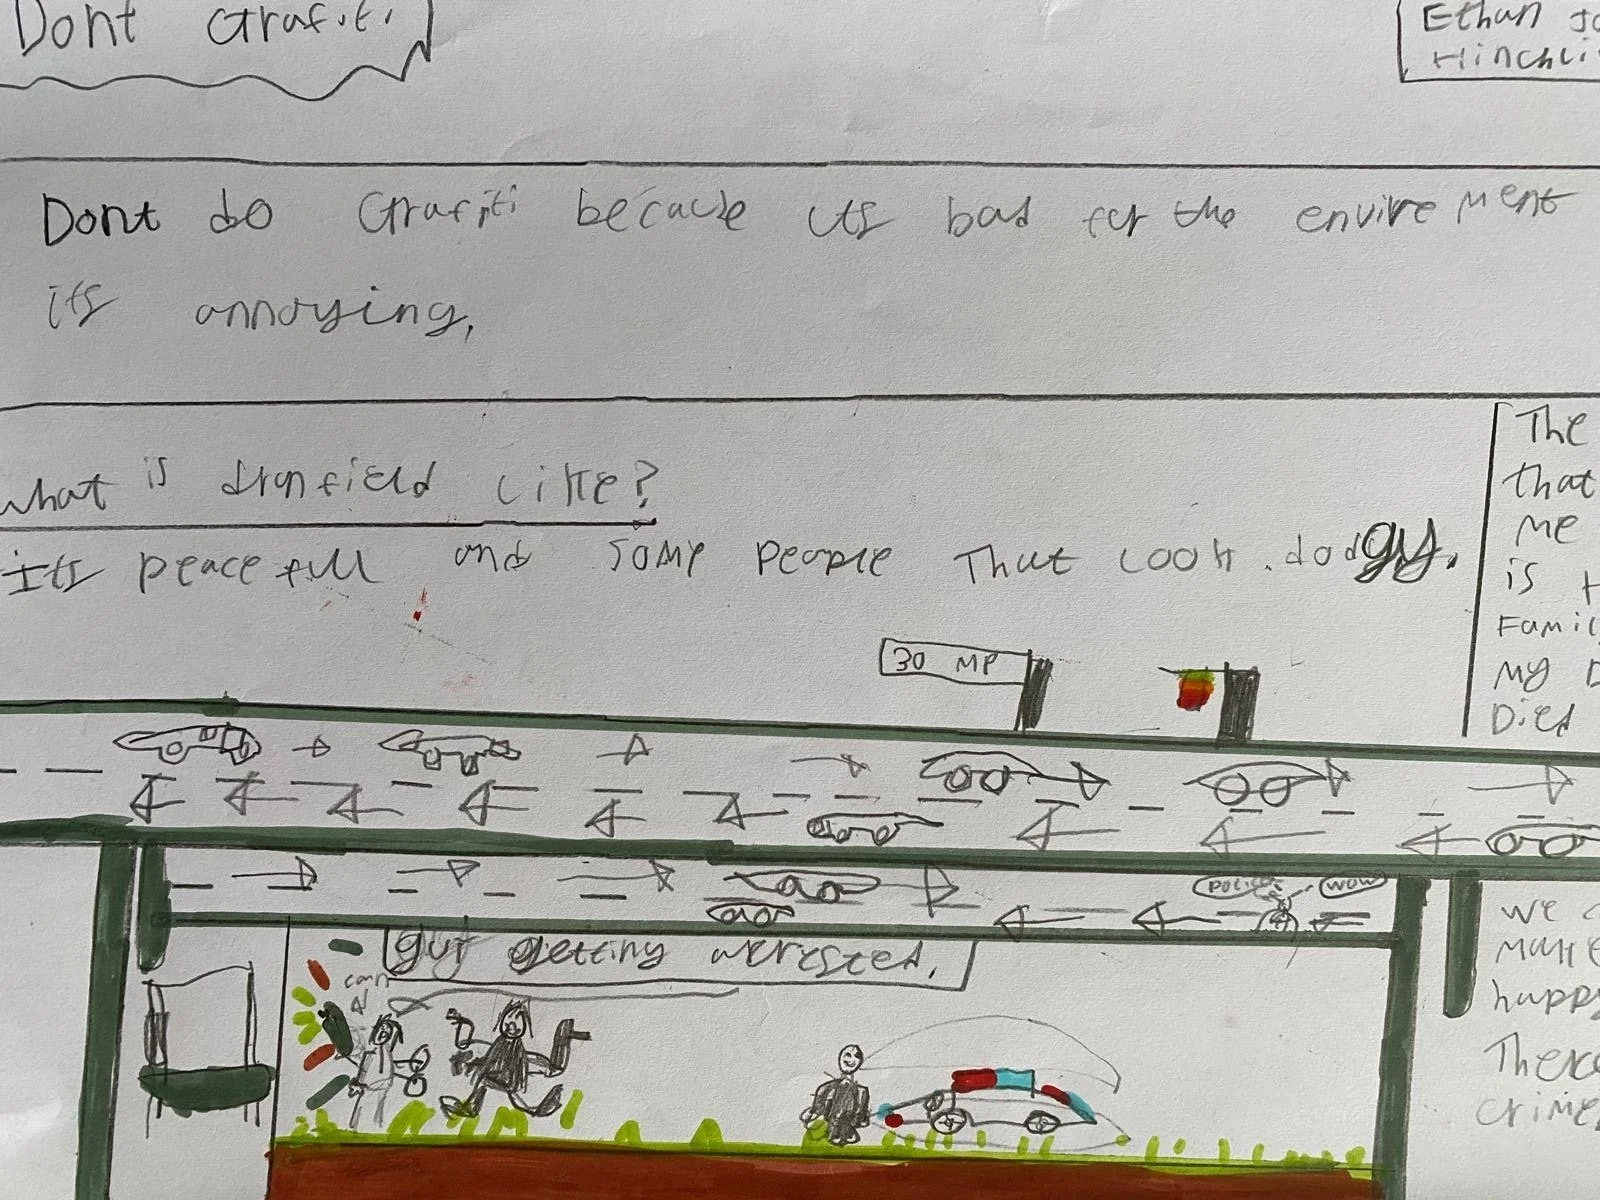 Dont Grafiti
Ethan Jo
Hinchli
Dont do Grafiti becaube its bad for the envirement
its annoying,
what is dronfield like?
its peacefull and some people That look dodgy.
The
that
me
is H
Famil
my D
Died
30 MP
police wow
guy getting arersted,
can
we
make
happy
There
crime